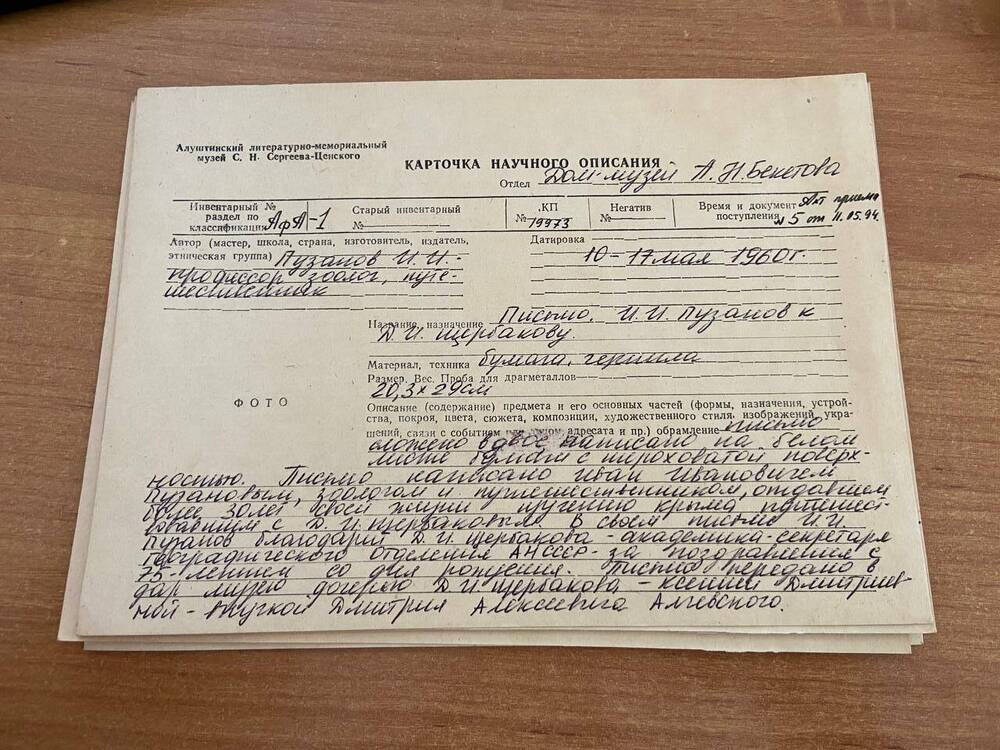 Алуштинский литературно-мемориальный
музей С. Н. Сергеева-Ценского
КАРТОЧКА НАУЧНОГО ОПИСАНИЯ
Отдел Дом-музей А.Н.Бекетова
Инвентарный №
раздел по
классификации АфА-1
Старый инвентарный
№
КП
№ 19973
Негатив
№
Время и документ Акт приема
поступления №5 от 11.05.94.
Автор (мастер, школа, страна, изготовитель, издатель,
этническая группа) Пузанов И.И.-
профессор зоолог, путе-
шественник
Датировка
10-17 мая 1960г.
Название, назначение Письмо. И.И. Пузанов к
Д.И. Щербакову.
Материал, техника бумага, чернила
Размер. Вес. Проба для драгметаллов
20,3х29см
ФОТО
Описание (содержание) предмета и его основных частей (формы, назначения, устрой-
ства, покроя, цвета, сюжета, композиции, художественного стиля, изображений, укра-
шений, связи с событием адресата и пр.) обрамление письмо
сложено вдвое написано на белом
листе бумаги с шероховатой поверх-
ностью. Письмо написано Иван Ивановичем
Пузановым, зоологом и путешественником, отдавшем
более 30 лет своей жизни изучению Крыма путешест-
вовавшим с Д.И. Щербаковым. В своем письме И.И.
Пузанов благодарит Д.И. Щербакова - академика-секретаря
географического отделения АН СССР - за поздравления с
75-летием со дня рождения. Письмо передано в
дар музею дочерью Д.И. Щербакова - Ксенией Дмитриев-
ной - внучкой Дмитрия Алексеевича Алчевского.